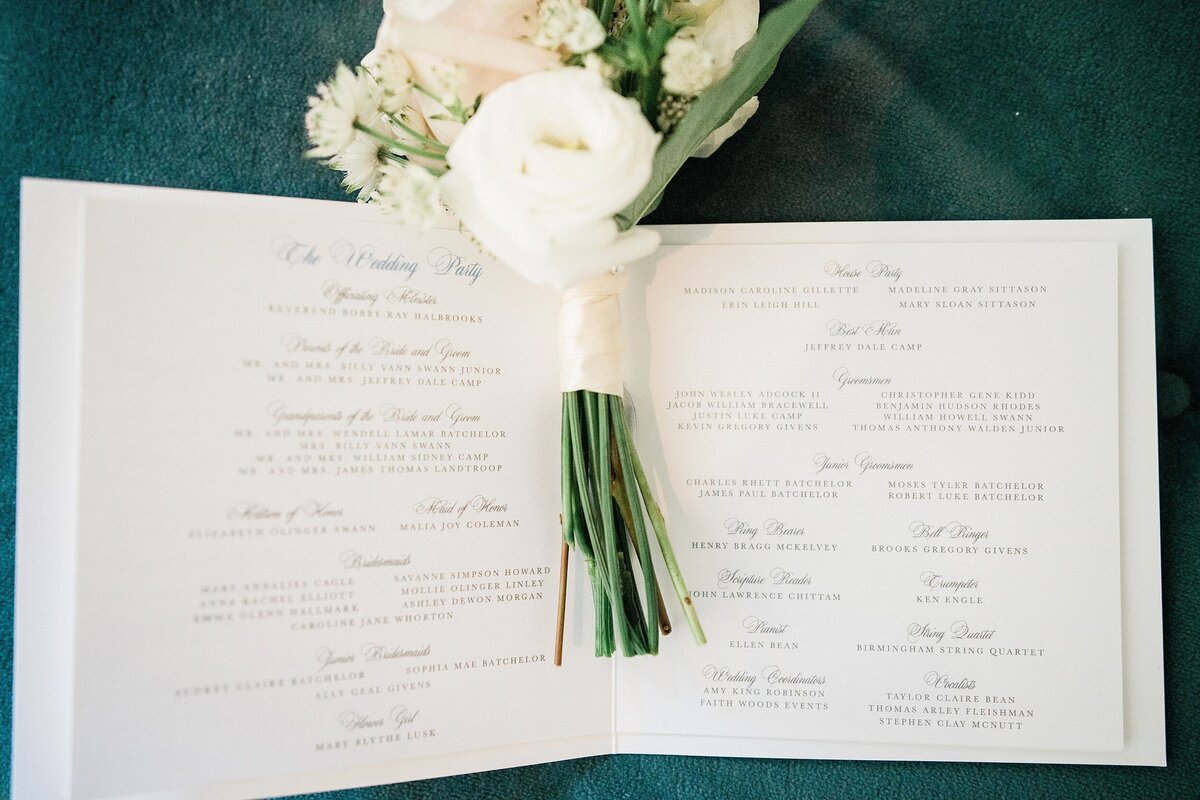 The Wedding Party
Officiating Minister
REVEREND BOBBY RAY HALBROOKS
Parents of the Bride and Groom
MR. AND MRS. BILLY VANN SWANN JUNIOR
MR. AND MRS. JEFFREY DALE CAMP
Grandparents of the Bride and Groom
MR. AND MRS. WENDELL LAMAR BATCHELOR
MRS. BILLY VANN SWANN
MR. AND MRS. WILLIAM SIDNEY CAMP
MR. AND MRS. JAMES THOMAS LANDTROOP
Matron of Honor
ELIZABETH OLINGER SWANN
Maid of Honor
MALIA JOY COLEMAN
Bridesmaids
MARY ANNALISA CAGLE
ANNA RACHEL ELLIOTT
EMMA GLENN HALLMARK
SAVANNE SIMPSON HOWARD
MOLLIE OLINGER LINLEY
ASHLEY DEWON MORGAN
CAROLINE JANE WHORTON
Junior Bridesmaids
AUBREY CLAIRE BATCHELOR
SOPHIA MAE BATCHELOR
ALLY GEAL GIVENS
Flower Girl
MARY BLYTHE LUSK
House Party
MADISON CAROLINE GILLETTE
ERIN LEIGH HILL
MADELINE GRAY SITTASON
MARY SLOAN SITTASON
Best Man
JEFFREY DALE CAMP
Groomsmen
JOHN WESLEY ADCOCK II
JACOB WILLIAM BRAGEWELL
JUSTIN LUKE CAMP
KEVIN GREGORY GIVENS
CHRISTOPHER GENE KIDD
BENJAMIN HUDSON RHODES
WILLIAM HOWELL SWANN
THOMAS ANTHONY WALDEN JUNIOR
Junior Groomsmen
CHARLES RHETT BATCHELOR
JAMES PAUL BATCHELOR
MOSES TYLER BATCHELOR
ROBERT LUKE BATCHELOR
Ring Bearer
HENRY BRAGG MCKELVEY
Bell Ringer
BROOKS GREGORY GIVENS
Scripture Reader
JOHN LAWRENCE CHITTAM
Trumpeter
KEN ENGLE
Pianist
ELLEN BEAN
String Quartet
BIRMINGHAM STRING QUARTET
Wedding Coordinators
AMY KING ROBINSON
FAITH WOODS EVENTS
Vocalists
TAYLOR CLAIRE BEAN
THOMAS ARLEY FLEISHMAN
STEPHEN CLAY MCNUTT